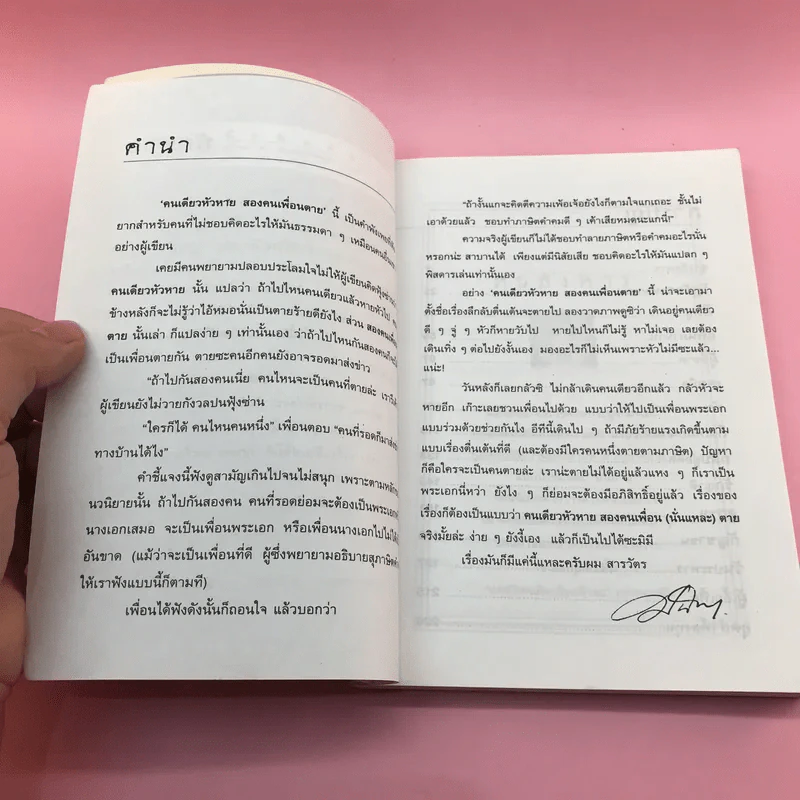 คำนำ
'คนเดียวหัวหาย สองคนเพื่อนตาย' นี้ เป็นคำพังเพยที่
ยากสำหรับคนที่ไม่ชอบคิดอะไรให้มันธรรมดา ๆ เหมือนคนอื่น
อย่างผู้เขียน
เคยมีคนพยายามปลอบประโลมใจไม่ให้ผู้เขียนคิดฟุ้งซ่าน
คนเดียวหัวหาย นั้น แปลว่า ถ้าไปไหนคนเดียวแล้วหัวหายไป
ข้างหลังก็จะไม่รู้ว่าไอ้หมอนั่นเป็นตายร้ายดียังไง ส่วน สองคนเพื่อน
ตาย นั้นเล่า ก็แปลง่าย ๆ เท่านั้นเอง ว่าถ้าไปไหนกันสองคนก็
เป็นเพื่อนตายกัน ตายซะคนอีกคนยังอาจรอดมาส่งข่าว
"ถ้าไปกันสองคนเนี่ย คนไหนจะเป็นคนที่ตายล่ะ
ผู้เขียนยังไม่วายกังวลปนฟุ้งซ่าน
"ใครก็ได้ คนไหนคนหนึ่ง" เพื่อนตอบ "คนที่รอดก็มาส่ง
ทางบ้านได้ไง"
คำชี้แจงนี้ฟังดูสามัญเกินไปจนไม่สนุก เพราะตามหลัก
นวนิยายนั้น ถ้าไปกันสองคน คนที่รอดย่อมจะต้องเป็นพระเอก
นางเอกเสมอ จะเป็นเพื่อนพระเอก หรือเพื่อนนางเอกไปไม่ได้
อันขาด (แม้ว่าจะเป็นเพื่อนที่ดี ผู้ซึ่งพยายามอธิบายสุภาษิต
ให้เราฟังแบบนี้ก็ตามที)
เพื่อนได้ฟังดังนั้นก็ถอนใจ แล้วบอกว่า
"ถ้างั้นแกจะคิดตีความเพ้อเจ้อยังไงก็ตามใจแกเถอะ ชั้นไม่
เอาด้วยแล้ว ชอบทำภาษิตคำคมดี ๆ เค้าเสียหมดนะแกนี่!"
ความจริงผู้เขียนก็ไม่ได้ชอบทำลายภาษิตหรือคำคมอะไรนั่น
หรอกน่ะ สาบานได้ เพียงแต่มีนิสัยเสีย ชอบคิดอะไรให้มันแปลก ๆ
พิสดารเล่นเท่านั้นเอง
อย่าง 'คนเดียวหัวหาย สองคนเพื่อนตาย' นี้ น่าจะเอามา
ตั้งชื่อเรื่องลึกลับตื่นเต้นจะตายไป ลองวาดภาพดูซิว่า เดินอยู่คนเดียว
ดี ๆ จู่ ๆ หัวก็หายวับไป หายไปไหนก็ไม่รู้ หาไม่เจอ เลยต้อง
เดินเทิ่ง ๆ ต่อไปยังงั้นเอง มองอะไรก็ไม่เห็นเพราะหัวไม่มีซะแล้ว...
แน่ะ!
วันหลังก็เลยกลัวซิ ไม่กล้าเดินคนเดียวอีกแล้ว กลัวหัวจะ
หายอีก เก๊าะเลยชวนเพื่อนไปด้วย แบบว่าให้ไปเป็นเพื่อนพระเอก
แบบร่วมด้วยช่วยกันไง อีทีนี้เดินไป ๆ ถ้ามีภัยร้ายแรงเกิดขึ้นตาม
แบบเรื่องตื่นเต้นที่ดี (และต้องมีใครคนหนึ่งตายตามภาษิต) ปัญหา
ก็คือใครจะเป็นคนตายล่ะ เราน่ะตายไม่ได้อยู่แล้วแหง ๆ ก็เราเป็น
พระเอกนี่หว่า ยังไง ๆ ก็ย่อมจะต้องมีอภิสิทธิ์อยู่แล้ว เรื่องของ
เรื่องก็ต้องเป็นแบบว่า คนเดียวหัวหาย สองคนเพื่อน (นั่นแหละ) ตาย
จริงมั้ยล่ะ ง่าย ๆ ยังงี้เอง แล้วก็เป็นไปได้ซะมิมี
เรื่องมันก็มีแค่นี้แหละครับผม สารวัตร